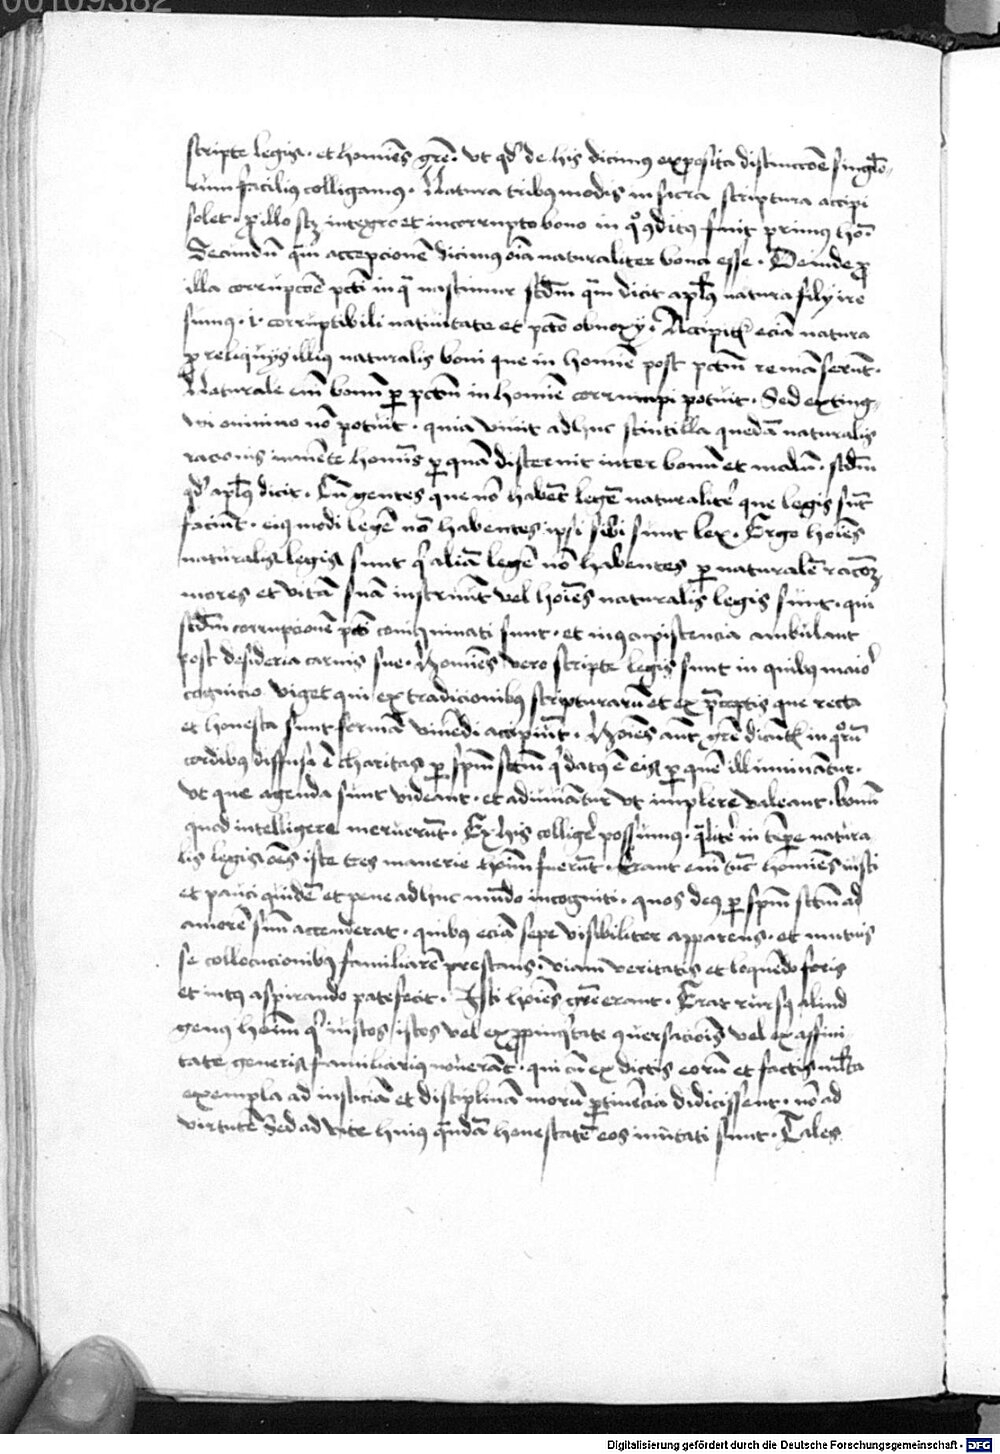 00109382
scripte legis · et homīes grē · vt qd' de his dicimus exposita distinccōe singlo-
rum facilius colligamus · Natura tribus modis in sacra scriptura accipi
solet · pro illo scz integro et incorrupto bono in q° 9ditus fuit primus hō ·
Secundū quā accepcionē dicimus oīa naturaliter bona esse · Deinde pro
illa corrupcōe pcti in qua nascimur scdm quā dicit aplus natura filij ire
sumus · i · corruptibili natiuitate et pcto obnoxij · Accipit' eciā natura
pro reliquijs illius naturalis boni que in homīe post pctm remāserūt ·
Naturale em bonū per pctm in homīe corrumpi potuit · Sed exting-
wi omnino nō potuit · quia viuit adhuc scintilla quedā naturalis
racionis in mente homīs per quā discernit inter bonū et malū · scdm
qd' aplus dicit · Cū gentes que nō habēt legē naturalit' que legis sūt
faciūt · eiusmodi legē nō habentes ipsi sibi sunt lex · Ergo hoīes
naturalis legis sunt q' aliā legē nō habentes per naturalē racōz
mores et vitā suā instruūt vel hoīes naturalis legis sunt · qui
scdm corrupcionē pcti coinquinati sunt · et in concupiscencia ambulant
post desideria carnis sue · Homīes vero scripte legis sunt in quibus maio'
cognicio viget qui ex tradicionibus scripturarū et ex preceptis que recta
et honesta sunt formā viuēdi accipiūt · Hoīes aut grē dicūt' in quorū
cordibus diffusa ē charitas per spm sctm q' datus ē eis per quē illuminātur ·
vt que agenda sunt videant · et adiuuātur vt implere valeant · bonū
quod intelligere meruerūt · Ex his collige' possumus · qualit' in tpe natura
lis legis oēs iste tres manerie hoīm fuerūt · Erant em tūc homīes iusti
et pauci quidē et pene adhuc mūdo incogniti · quos deus per spm sctm ad
amorē suū accenderat · quibus eciā sepe visibiliter apparens · et mutuis
se collocucionibus familiarē prestans · viam veritatis et loquēdo foris
et intus aspirando patefecit · Isti hoīes grē erant · Erat rursus aliud
genus hoīm q' iustos istos vel ex propinquitate 9uersaciois vel ex affini
tate generis familiarius nouerāt · qui cū ex dictis eorū et factis multa
exempla ad iusticiā et disciplinā morū pertinēcia didicissent · nō ad
virtutē Sed ad vite huius quandā honestatē eos imitati sunt · Tales
Digitalisierung gefördert durch die Deutsche Forschungsgemeinschaft - DFG